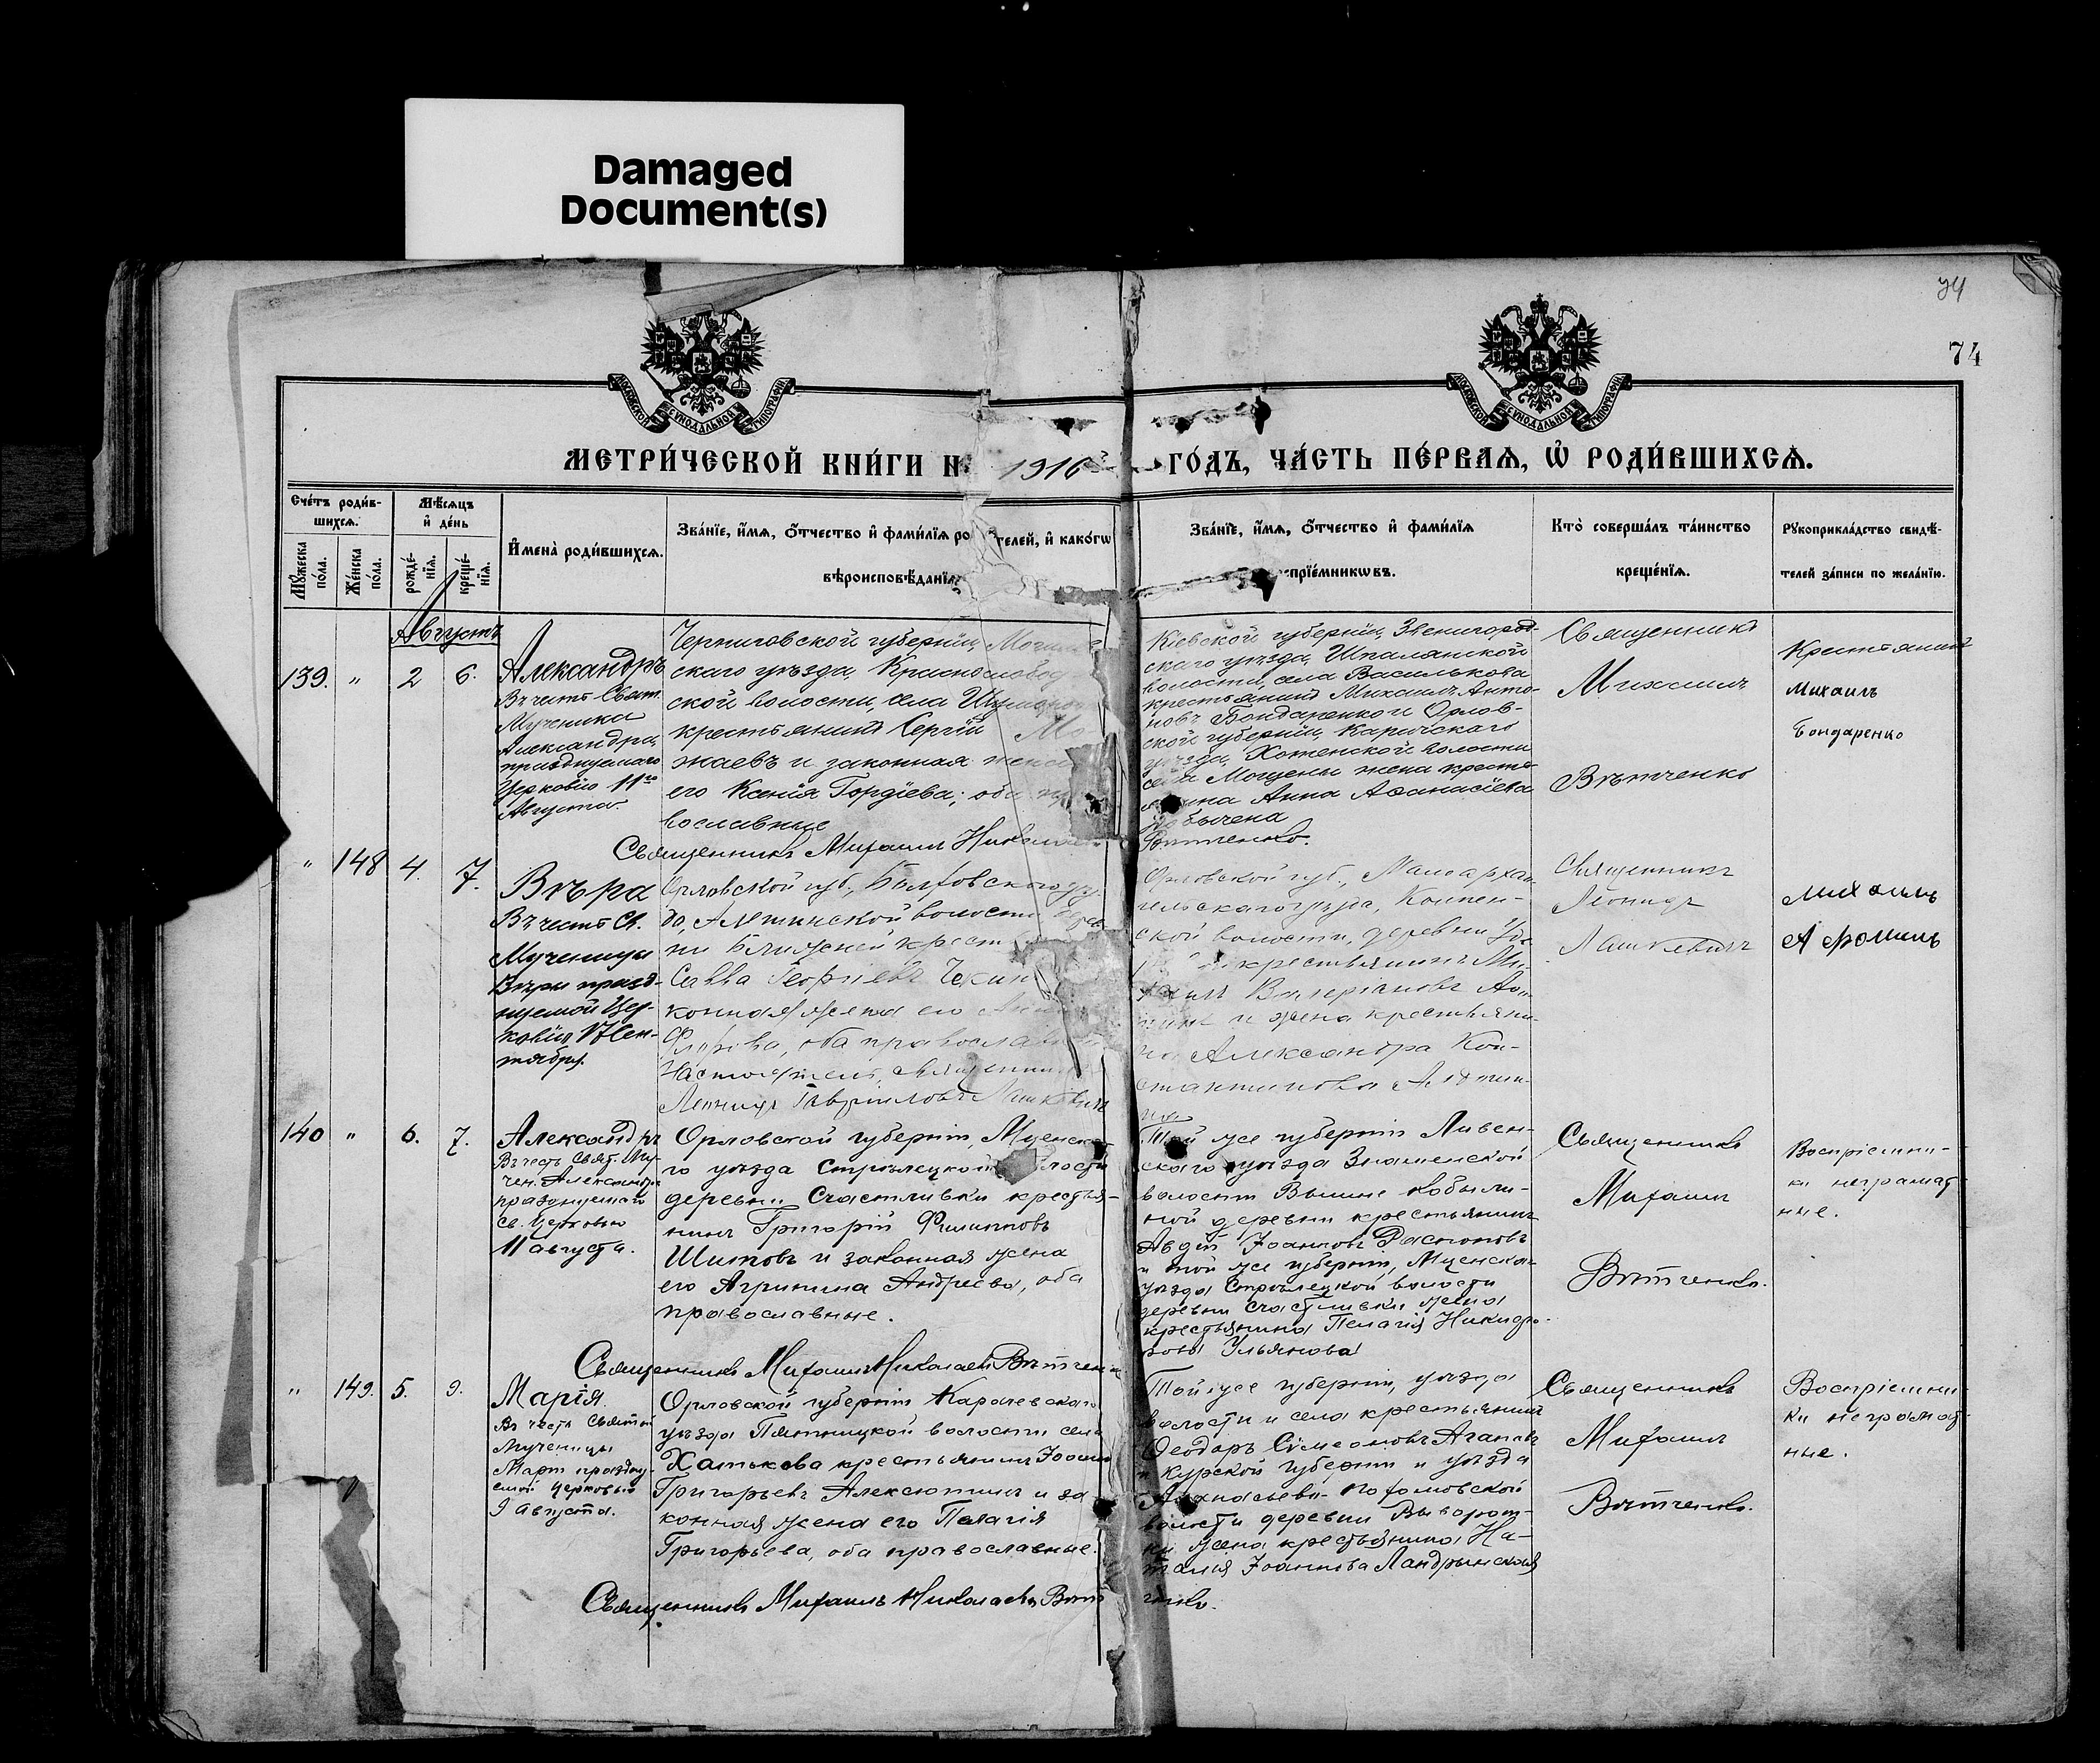 Damaged
Document(s)
74
74
МОСКОВСКОЙ СѴНОДАЛЬНОЙ ТИПОГРАФІИ
МОСКОВСКОЙ СѴНОДАЛЬНОЙ ТИПОГРАФІИ
МЕТРИ́ЧЕСКОЙ КНИ́ГИ Н 1916 ГО́ДЪ, ЧА́СТЬ ПЕ́РВАѦ, Ѡ҆ РОДИ́ВШИХСѦ.
Сче́тъ роди́в-
шихсѧ.
Мѣ́сѧцъ
и҆ де́нь
Мꙋ́жеска по́ла.
Же́нска по́ла.
рожде́-нїѧ.
креще́-нїѧ.
И҆мена̀ роди́вшихсѧ.
Зва́нїе, и҆́мѧ, о҆́тчество и҆ фами́лїѧ ро телей, и҆ како́гѡ
вѣроисповѣ́данїѧ
Зва́нїе, и҆́мѧ, о҆́тчество и҆ фами́лїѧ
прїе́мникѡвъ.
Кто̀ соверша́лъ та́инство
креще́нїѧ.
Рꙋкоприкла́дство свидѣ́-
телей за́писи по жела́нїю.
Августъ
139. " 2 6.
Александръ
Въ честь Свят.
Мученика
Александра,
празднуемаго
Церковію 11го
Августа
Черниговской губерніи,
скаго уѣзда, Краснослобод
ской волости, села
крестьянинъ Сергій Мо
жаевъ и законная жена
его Ксенія Гордіева; оба пр
вославные
Священникъ Михаилъ Николаевъ
Кіевской губерніи, Звенигород-
скаго уѣзда, Шполянской
волости, села Василькова
крестьянинъ Михаилъ Анто-
новъ Бондаренко и Орлов-
ской губерніи, Карачскаго
уѣзда, Хотенской волости
села жена кресть-
янина Анна Аѳанасіева
Вѣтченко.
Священникъ
Михаилъ
Вѣтченко
Крестьянинъ
Михаилъ
Бондаренко
" 148 4. 7.
Вѣра
Въ честь Св.
Мученицы
Вѣры празд-
нуемой Цер-
ковію 17 Сен-
тября.
Орловской губ., Болховского уѣз
да, волости дерев
ни Ближней крест
Савва Георгіевъ Чекин
конная жена его Анна
Флорова, оба православн
Настоятель, священник
Леонидъ Гавріиловъ Лашкевичъ
Орловской губ., Малоархан-
гельскаго уѣзда,
ской волости, деревни
крестьянинъ Ми-
хаилъ Валеріановъ
и жена крестьяни-
на Александра Кон-
стантинова
Священникъ
Леонидъ
Лашкевичъ
Михаилъ
140 " 6. 7.
Александръ
Въ честь Свят. Му-
чен. Александра
празднуемаго
Св. Церковью
11 августа.
Орловской губерніи, Мценска
го уѣзда Стрѣлецкой волости
деревни Счастливки крестья-
нинъ Григорій Филипповъ
Шитовъ и законная жена
его Агрипина Андреева, оба
православные.
Священникъ Михаилъ Николаевъ Вѣтченко
Той же губерніи Ливен-
скаго уѣзда Знаменской
волости Вышне Кобыли-
ной деревни крестьянинъ
Авдій Іоанновъ
и той же губерніи, Мценска-
уѣзда Стрѣлецкой волости
деревни Счастливки жена
крестьянина Пелагія Никифо-
рова Ульянова
Священникъ
Михаилъ
Вѣтченко.
Воспріемни-
ки неграмот-
ные.
" 149. 5. 9.
Марія.
Въ честь Святой
Мученицы
Маріи праздну-
емой Церковью
9 Августа.
Орловской губерніи Карачевскаго
уѣзда Пятницкой волости села
Хатькова крестьянинъ Іоаннъ
Григорьевъ Алексютинъ и за-
конная жена его Пелагія
Григорьева, оба православные.
Священникъ Михаилъ Николаевъ Вѣт
ченко.
Той же губерніи, уѣзда
волости и села крестьянинъ
Ѳеодоръ Сѵмеоновъ Агаповъ
и Курской губерніи и уѣзда
волости деревни Выворот-
ки жена крестьянина На-
талія Іоаннова Ландрынская
Священникъ
Михаилъ
Вѣтченко.
Воспріемни-
ки неграмот-
ные.